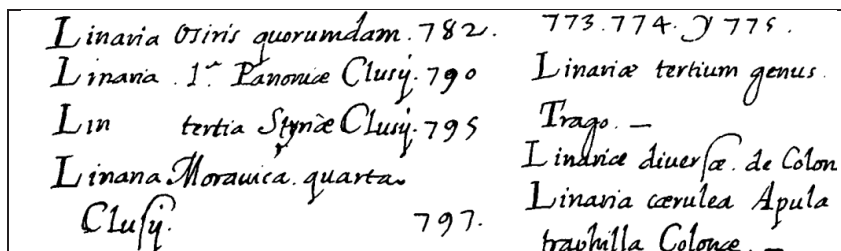 Linaria Osiris quorumdam. 782.
Linaria 1ᵃ Panoniæ Clusij. 790
Lin tertia Styriæ Clusij. 795
Linaria Morauica. quarta
Clusij. 797.
773. 774. y 775.
Linariæ tertium genus
Trago. —
Linariæ diuersæ. de Colon
Linaria cærulea Apula
traphilla Colonæ. —